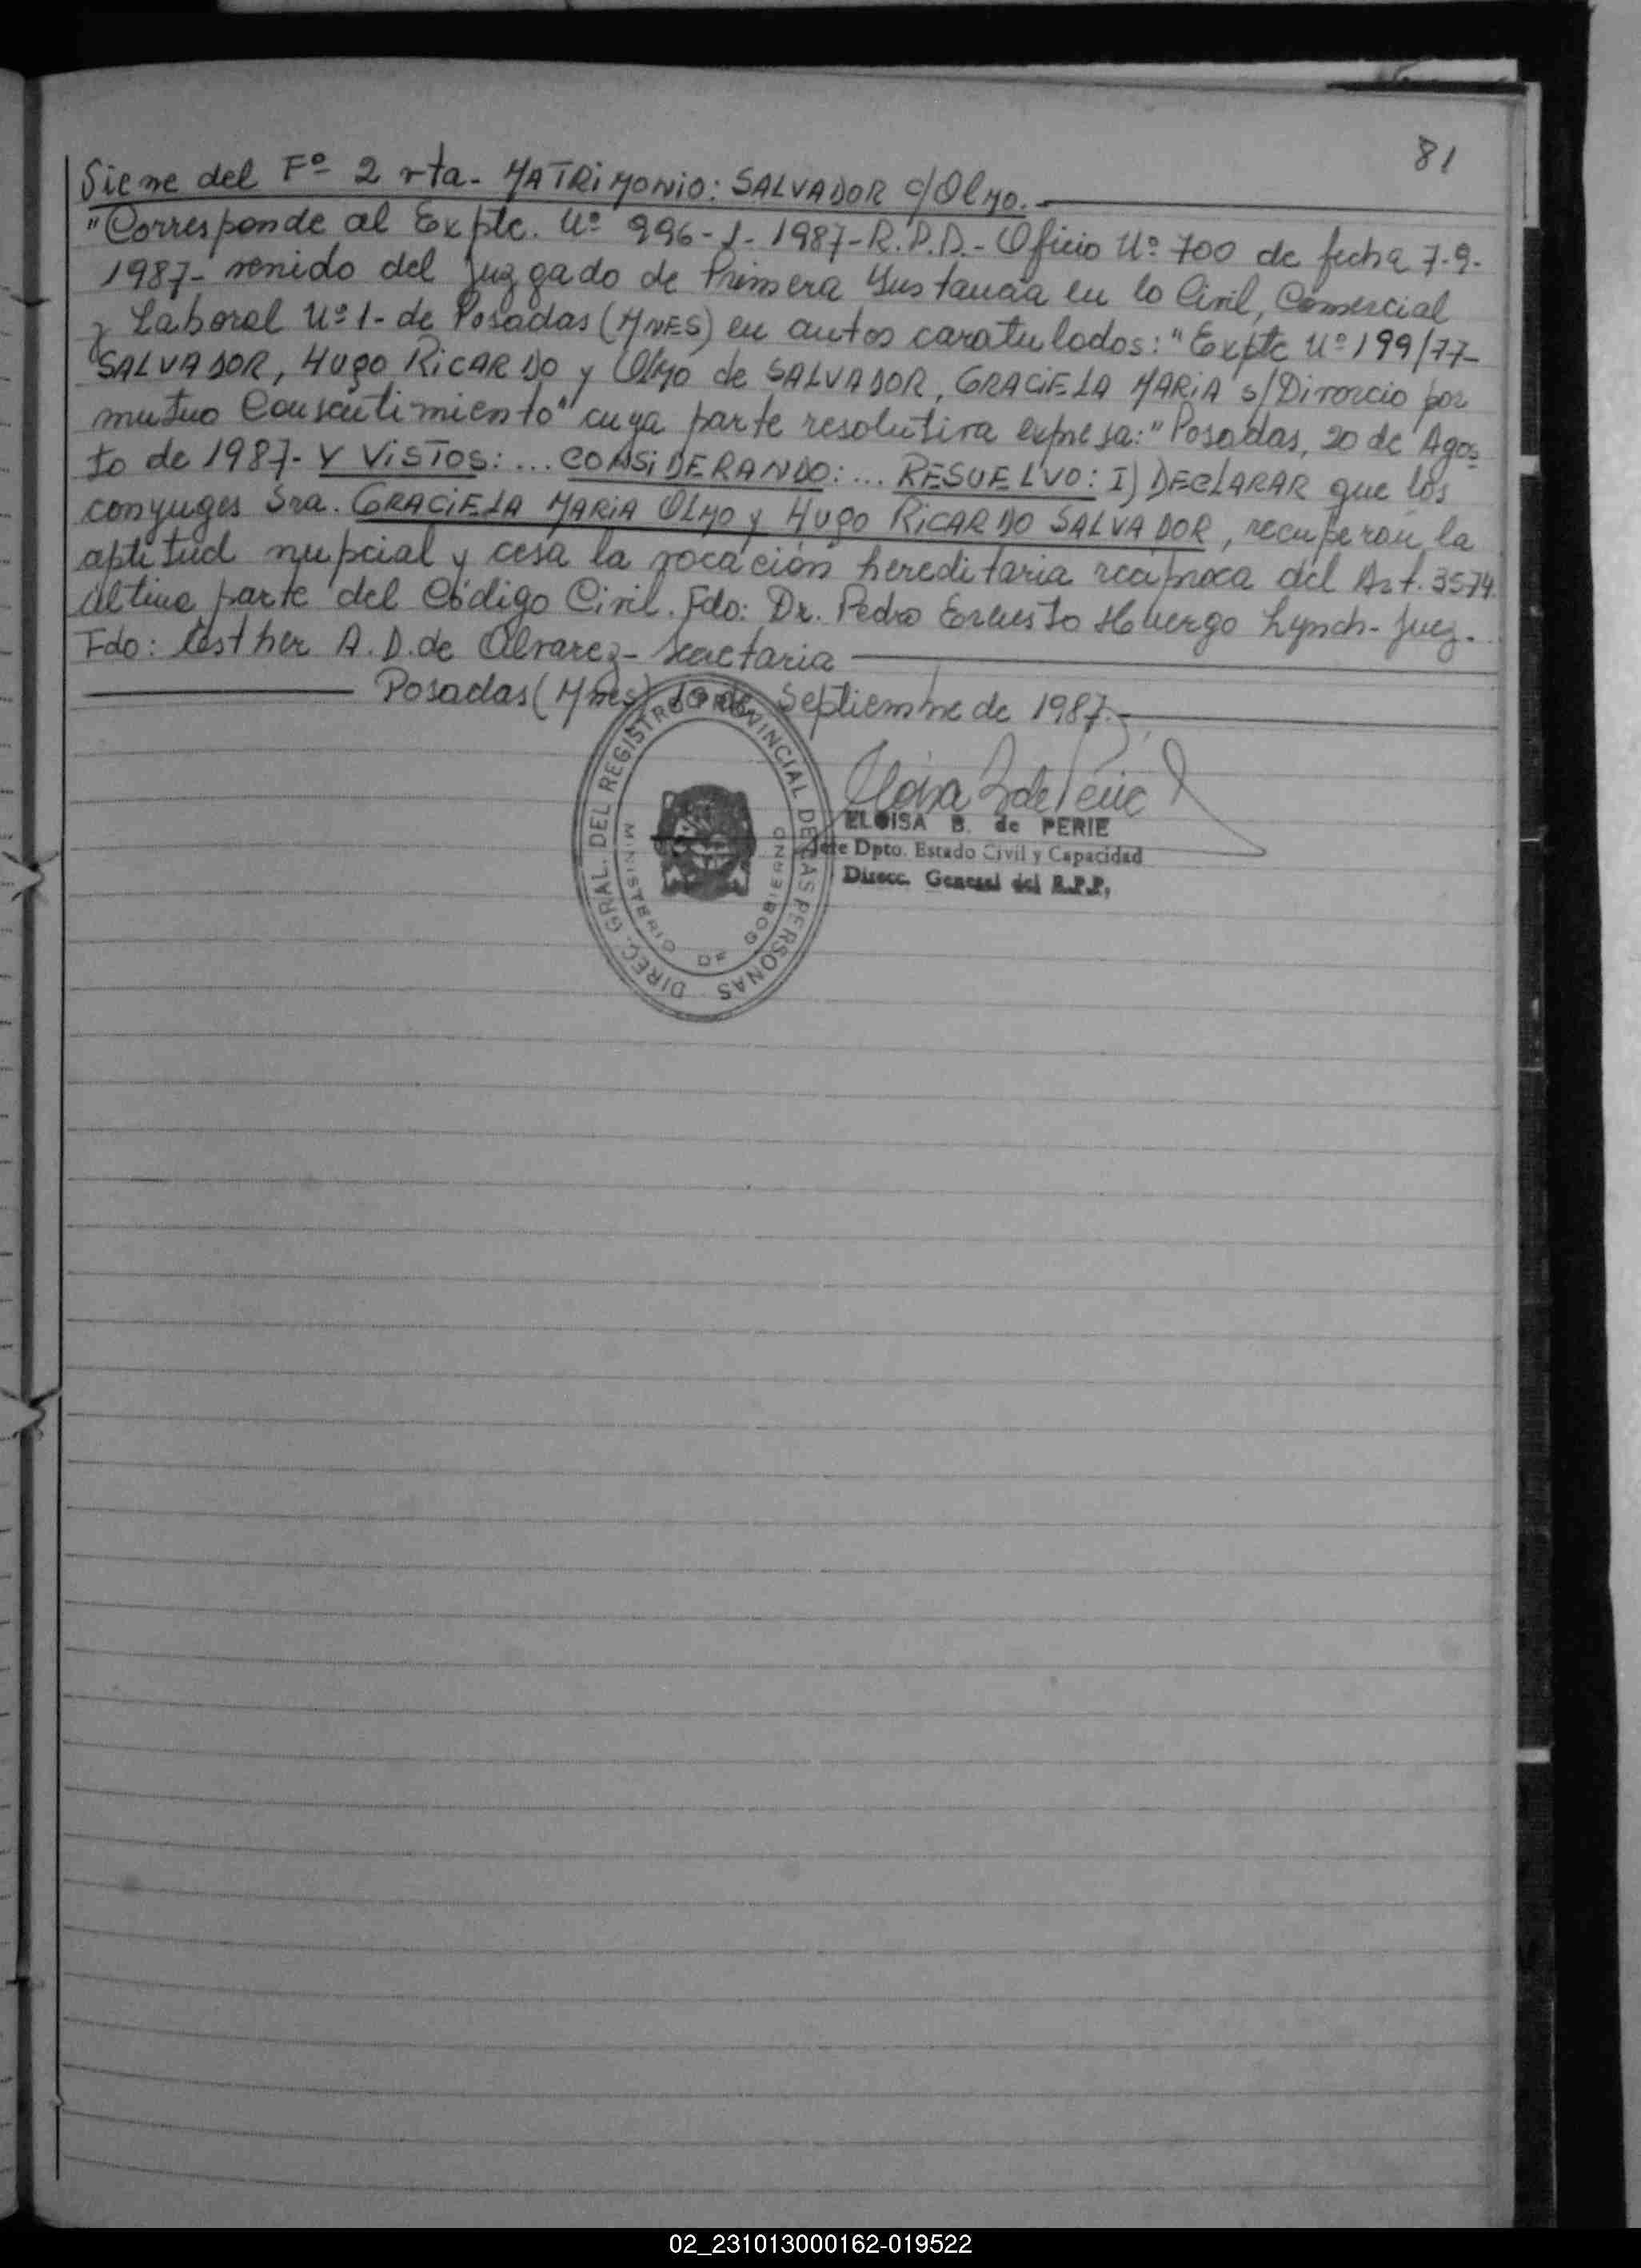 81
Viene del Fº 2 vta. MATRIMONIO: SALVADOR c/Olmo.
"Corresponde al Expte. Nº 996-J-1987-R.P.P.- Oficio Nº 700 de fecha 7-9-
1987- venido del Juzgado de Primera Instancia en lo Civil, Comercial
y Laboral Nº 1- de Posadas (MNES) en autos caratulados: "Expte Nº 199/77-
SALVADOR, HUgO RiCARDO y Olmo de SALVADOR, GRACiELA MARiA s/Divorcio por
mutuo Consentimiento" cuya parte resolutiva expresa: "Posadas, 20 de Agos
to de 1987- Y ViSTOS: ... CONSiDERANDO: ... RESUELVO: I) DECLARAR que los
conyuges Sra. GRACiELA MARiA OLMO y HUgO RiCARDO SALVADOR, recuperan la
aptitud nupcial y cesa la vocación hereditaria recíproca del Art. 3574
última parte del Código Civil. Fdo: Dr. Pedro Ernesto Huergo Lynch- Juez.
Fdo: Esther A. D. de Alvarez- Secretaria
Posadas (Mnes) de Septiembre de 1987.-
ELOISA B. de PERIE
Jefe Dpto. Estado Civil y Capacidad
Direcc. General del R.P.P.
DIREC. GRAL. DEL REGISTRO PROVINCIAL DE LAS PERSONAS
MINISTERIO DE GOBIERNO
02_231013000162-019522